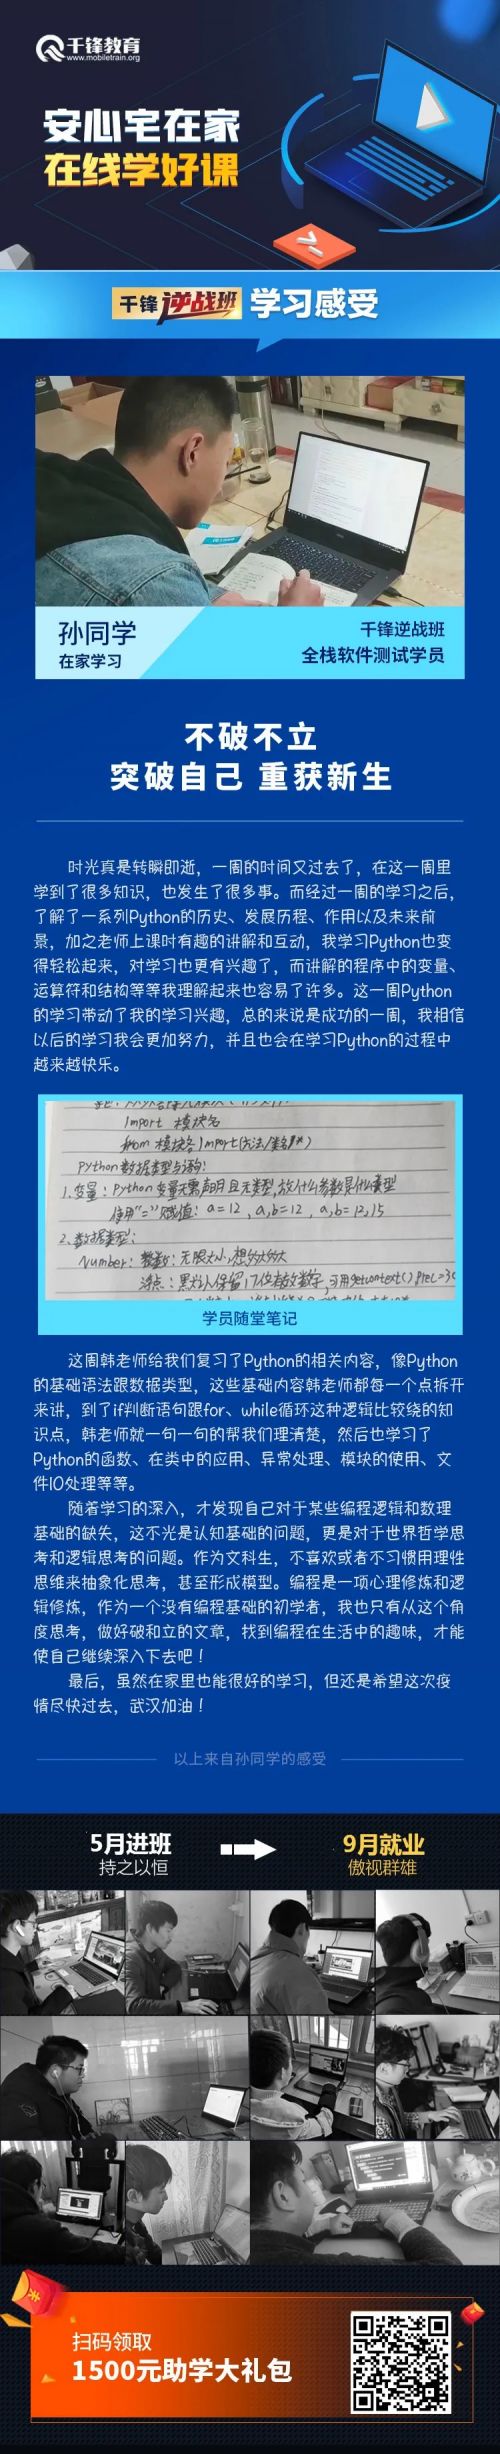 千锋教育
www.mobiletrain.org
安心宅在家
在线学好课
千锋 逆战班 学习感受
孙同学
在家学习
千锋逆战班
全栈软件测试学员
不破不立
突破自己 重获新生
时光真是转瞬即逝，一周的时间又过去了，在这一周里
学到了很多知识，也发生了很多事。而经过一周的学习之后，
了解了一系列Python的历史、发展历程、作用以及未来前
景，加之老师上课时有趣的讲解和互动，我学习Python也变
得轻松起来，对学习也更有兴趣了，而讲解的程序中的变量、
运算符和结构等等我理解起来也容易了许多。这一周Python
的学习带动了我的学习兴趣，总的来说是成功的一周，我相信
以后的学习我会更加努力，并且也会在学习Python的过程中
越来越快乐。
Import 模块名
from 模块名 Import(方法/类名/*)
Python数据类型与结构:
1.变量: Python变量无需声明且无类型,放什么参数是什么类型
使用"="赋值: a=12 , a,b=12 , a,b=12,15
2.数据类型:
Number: 整数: 无限大小,想多大多大
浮点: 默认保留17位有效数字,可用getcontext().prec=30
学员随堂笔记
这周韩老师给我们复习了Python的相关内容，像Python
的基础语法跟数据类型，这些基础内容韩老师都每一个点拆开
来讲，到了if判断语句跟for、while循环这种逻辑比较绕的知
识点，韩老师就一句一句的帮我们理清楚，然后也学习了
Python的函数、在类中的应用、异常处理、模块的使用、文
件IO处理等等。
随着学习的深入，才发现自己对于某些编程逻辑和数理
基础的缺失，这不光是认知基础的问题，更是对于世界哲学思
考和逻辑思考的问题。作为文科生，不喜欢或者不习惯用理性
思维来抽象化思考，甚至形成模型。编程是一项心理修炼和逻
辑修炼，作为一个没有编程基础的初学者，我也只有从这个角
度思考，做好破和立的文章，找到编程在生活中的趣味，才能
使自己继续深入下去吧！
最后，虽然在家里也能很好的学习，但还是希望这次疫
情尽快过去，武汉加油！
以上来自孙同学的感受
5月进班
持之以恒
9月就业
傲视群雄
扫码领取
1500元助学大礼包